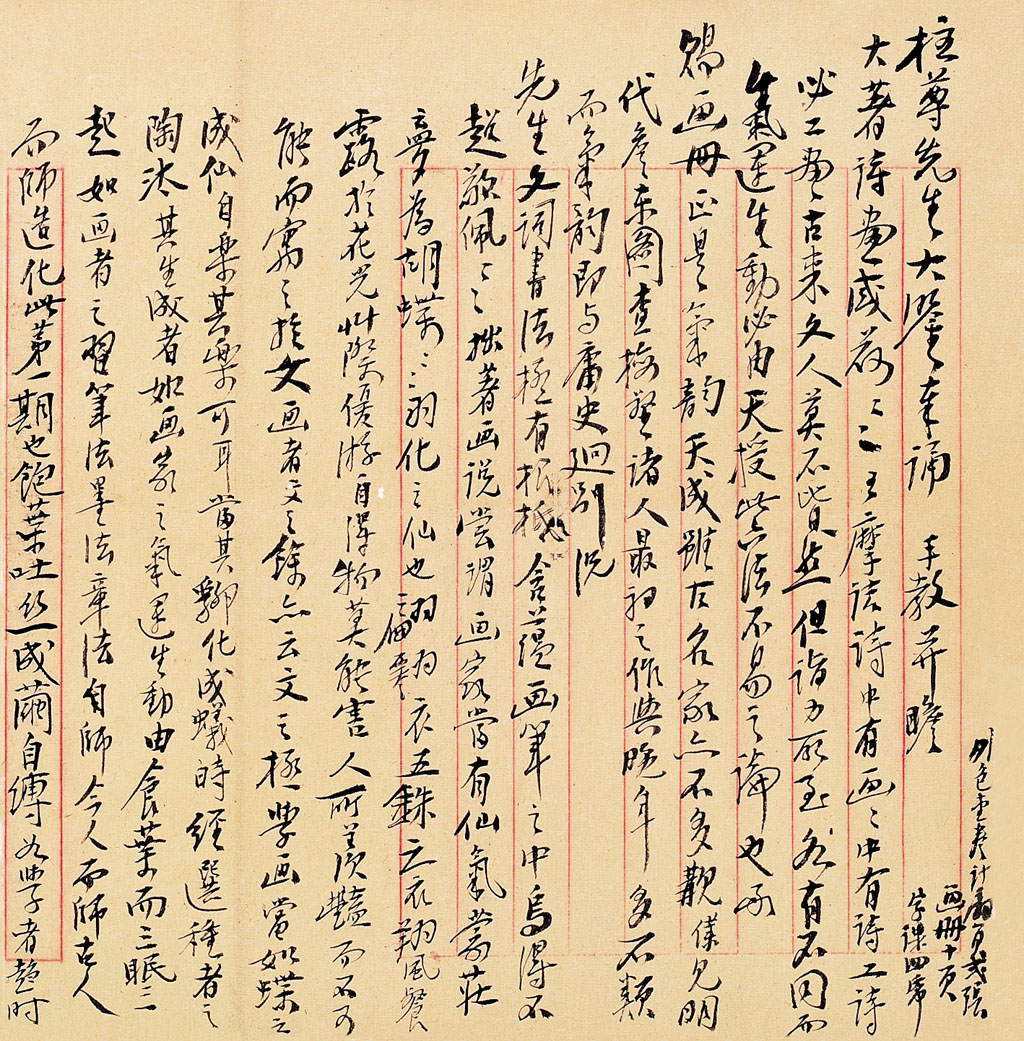 柱尊先生大鉴奉诵 手教并瞻
大著诗画感荷〻〻王摩诘诗中有画〻中有诗工诗
必工画〻古来文人莫不皆然但诣力所至各有不同而
气运生动必由天授此六法不易之论也承
赐画册正是气韵天成虽古名家亦不多觏仅见明
代詹东图查梅壑诸人最初之作与晚年多不类
而气韵即与庸史迥别况
先生文词书法极有根柢含蕴画笔之中乌得不
超歈佩〻〻拙著画说尝谓画家当有仙气蒙庄
梦为胡蝶〻〻羽化之仙也栩栩翩翩衣五铢之衣翔风餐
露于花光草际优游自得物莫能害人所羡艳而不可
能而寓之于文画者文之余亦云文之极学画当如蝶之
成仙自乐其乐可耳当其孵化成蚁时经选种者之
陶汰其生成者如画家之气运生动由食叶而三眠三
起如画者之习笔法墨法章法自师今人而师古人
而师造化此第一期也饱叶吐丝成茧自缚如学者趋时
外色
画册十页
字课四番